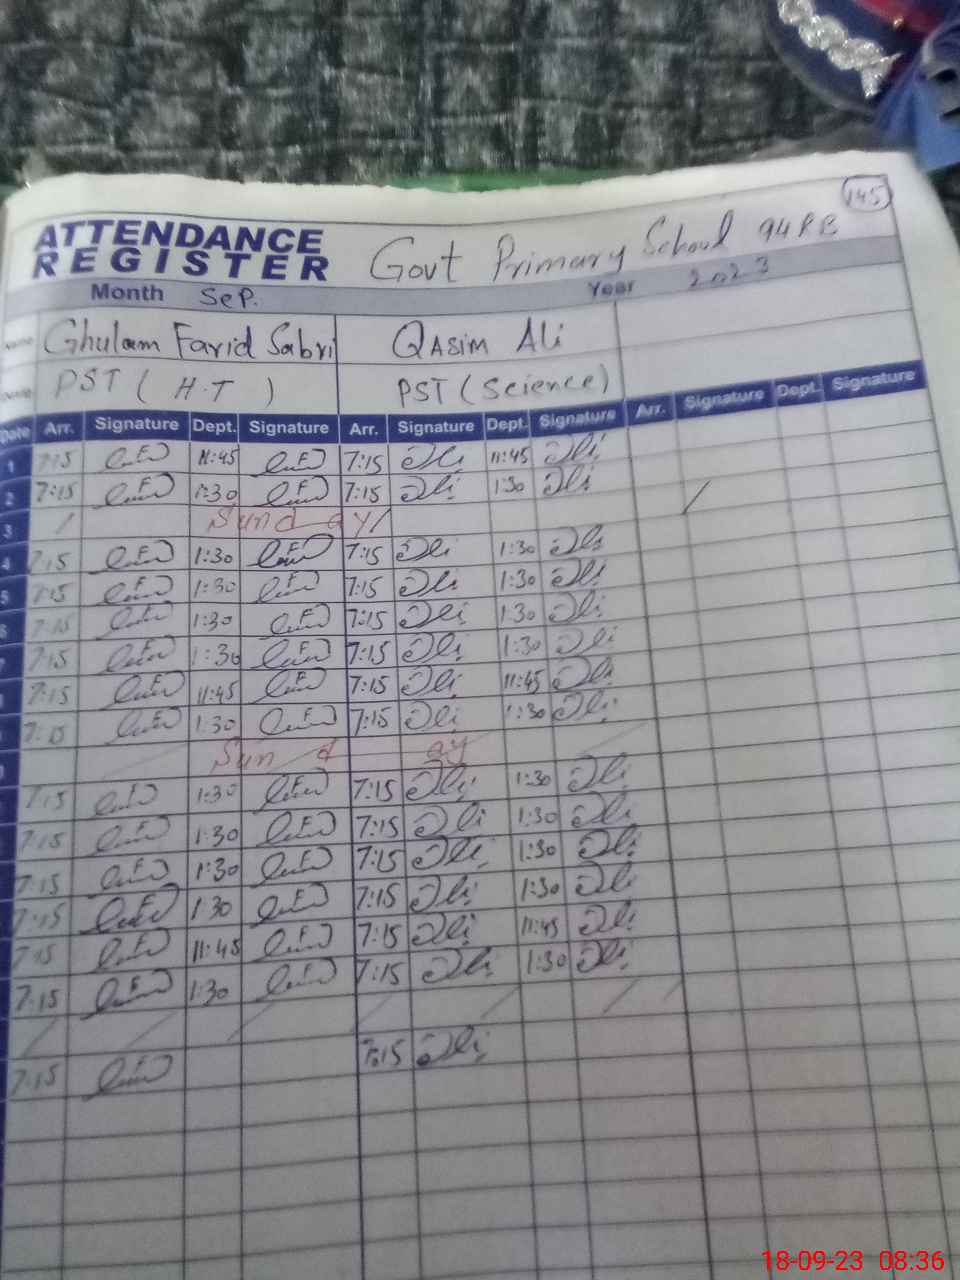 145
ATTENDANCE REGISTER Govt Primary School 94 RB
Month Sep. Year 2023
Name Ghulam Farid Sabri Qasim Ali
PST (H.T) PST (Science)
Date Arr. Signature Dept. Signature Arr. Signature Dept. Signature Arr. Signature Dept. Signature
1 7:15 11:45 7:15 Ali 11:45 Ali
2 7:15 1:30 7:15 Ali 1:30 Ali
3 Sunday
4 7:15 1:30 7:15 Ali 1:30 Ali
5 7:15 1:30 7:15 Ali 1:30 Ali
6 7:15 1:30 7:15 Ali 1:30 Ali
7 7:15 1:30 7:15 Ali 1:30 Ali
7:15 11:45 7:15 Ali 11:45 Ali
7:15 1:30 7:15 Ali 1:30 Ali
Sunday
7:15 1:30 7:15 Ali 1:30 Ali
7:15 1:30 7:15 Ali 1:30 Ali
7:15 1:30 7:15 Ali 1:30 Ali
7:15 1:30 7:15 Ali 1:30 Ali
7:15 11:45 7:15 Ali 11:45 Ali
7:15 1:30 7:15 Ali 1:30 Ali
7:15 7:15 Ali
18-09-23 08:36